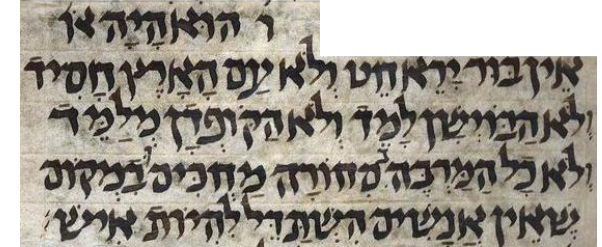 ו הוא היה או
אין בור ירא חט ולא עם הארץ חסיד
ולא הביישן למד ולא הקופדן מלמד
ולא כל המרבה בסחורה מחכים ובמקום
שאין אנשים השתדל להיות איש